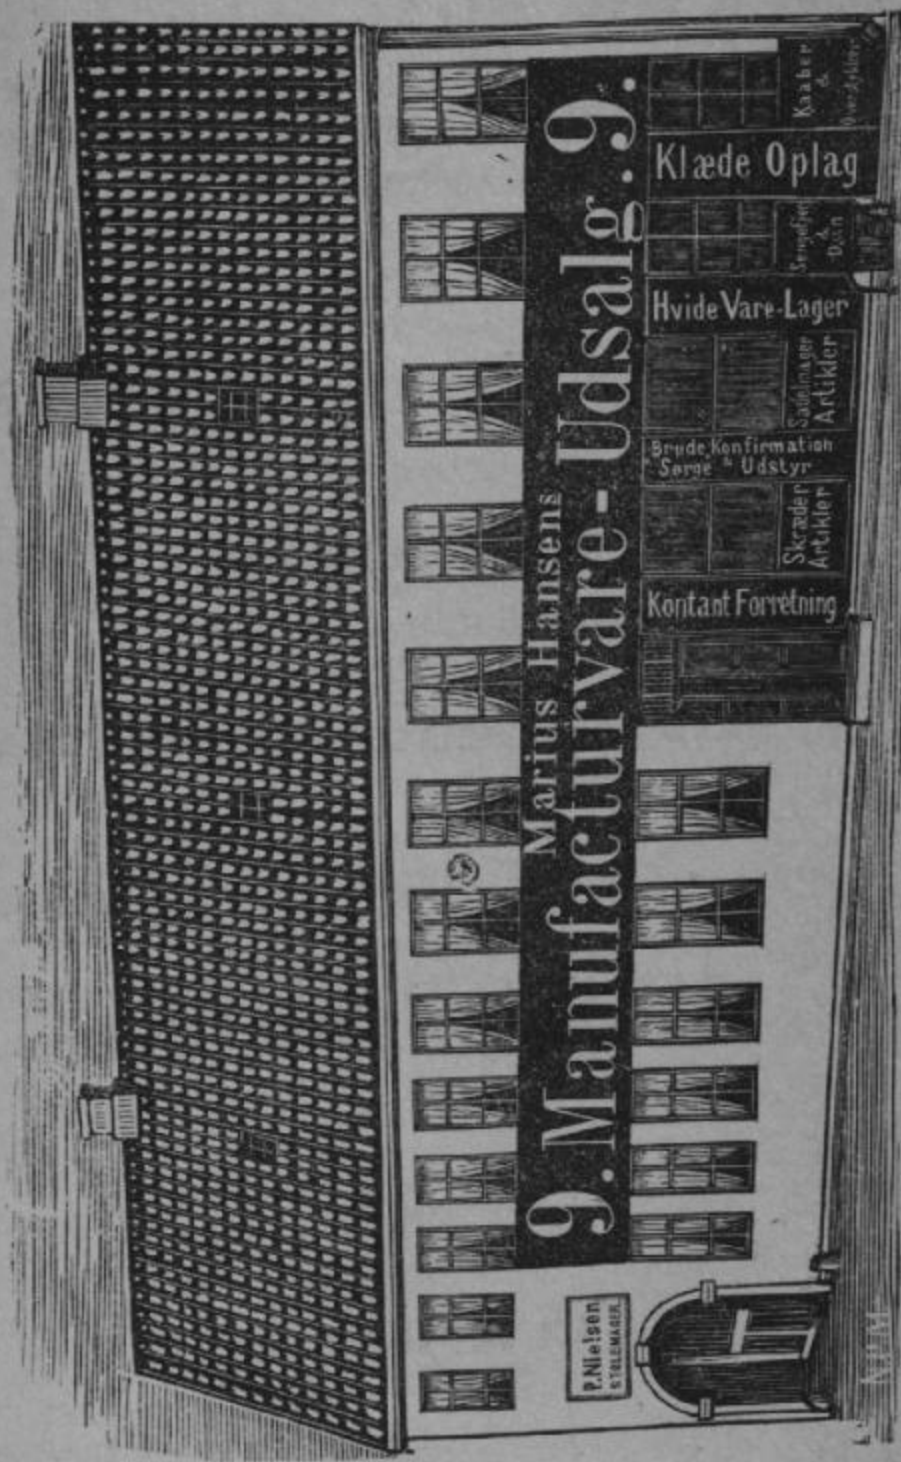 Marius Hansens
9. Manufacturvare-Udsalg. 9.
P. Nielsen
STOLEMAGER.
Kontant Forretning
Skræder
Artikler
Brude, Konfirmation
Sørge & Udstyr
Sadelmager
Artikler
Hvide Vare-Lager
&
Klæde Oplag
Kaaber
&